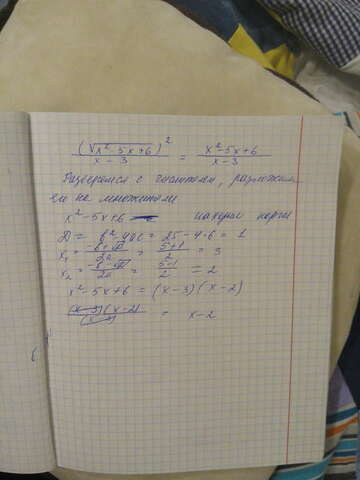 (√x² - 5x + 6)² / x - 3 = x² - 5x + 6 / x - 3
Разберемся с числителем, разложим
его на множители
x² - 5x + 6 найдем корни
D = b² - 4ac = 25 - 4·6 = 1
x₁ = -b + √D / 2a = 5 + 1 / 2 = 3
x₂ = -b - √D / 2a = 5 - 1 / 2 = 2
x² - 5x + 6 = (x - 3)(x - 2)
(x - 3)(x - 2) / (x - 3) = x - 2